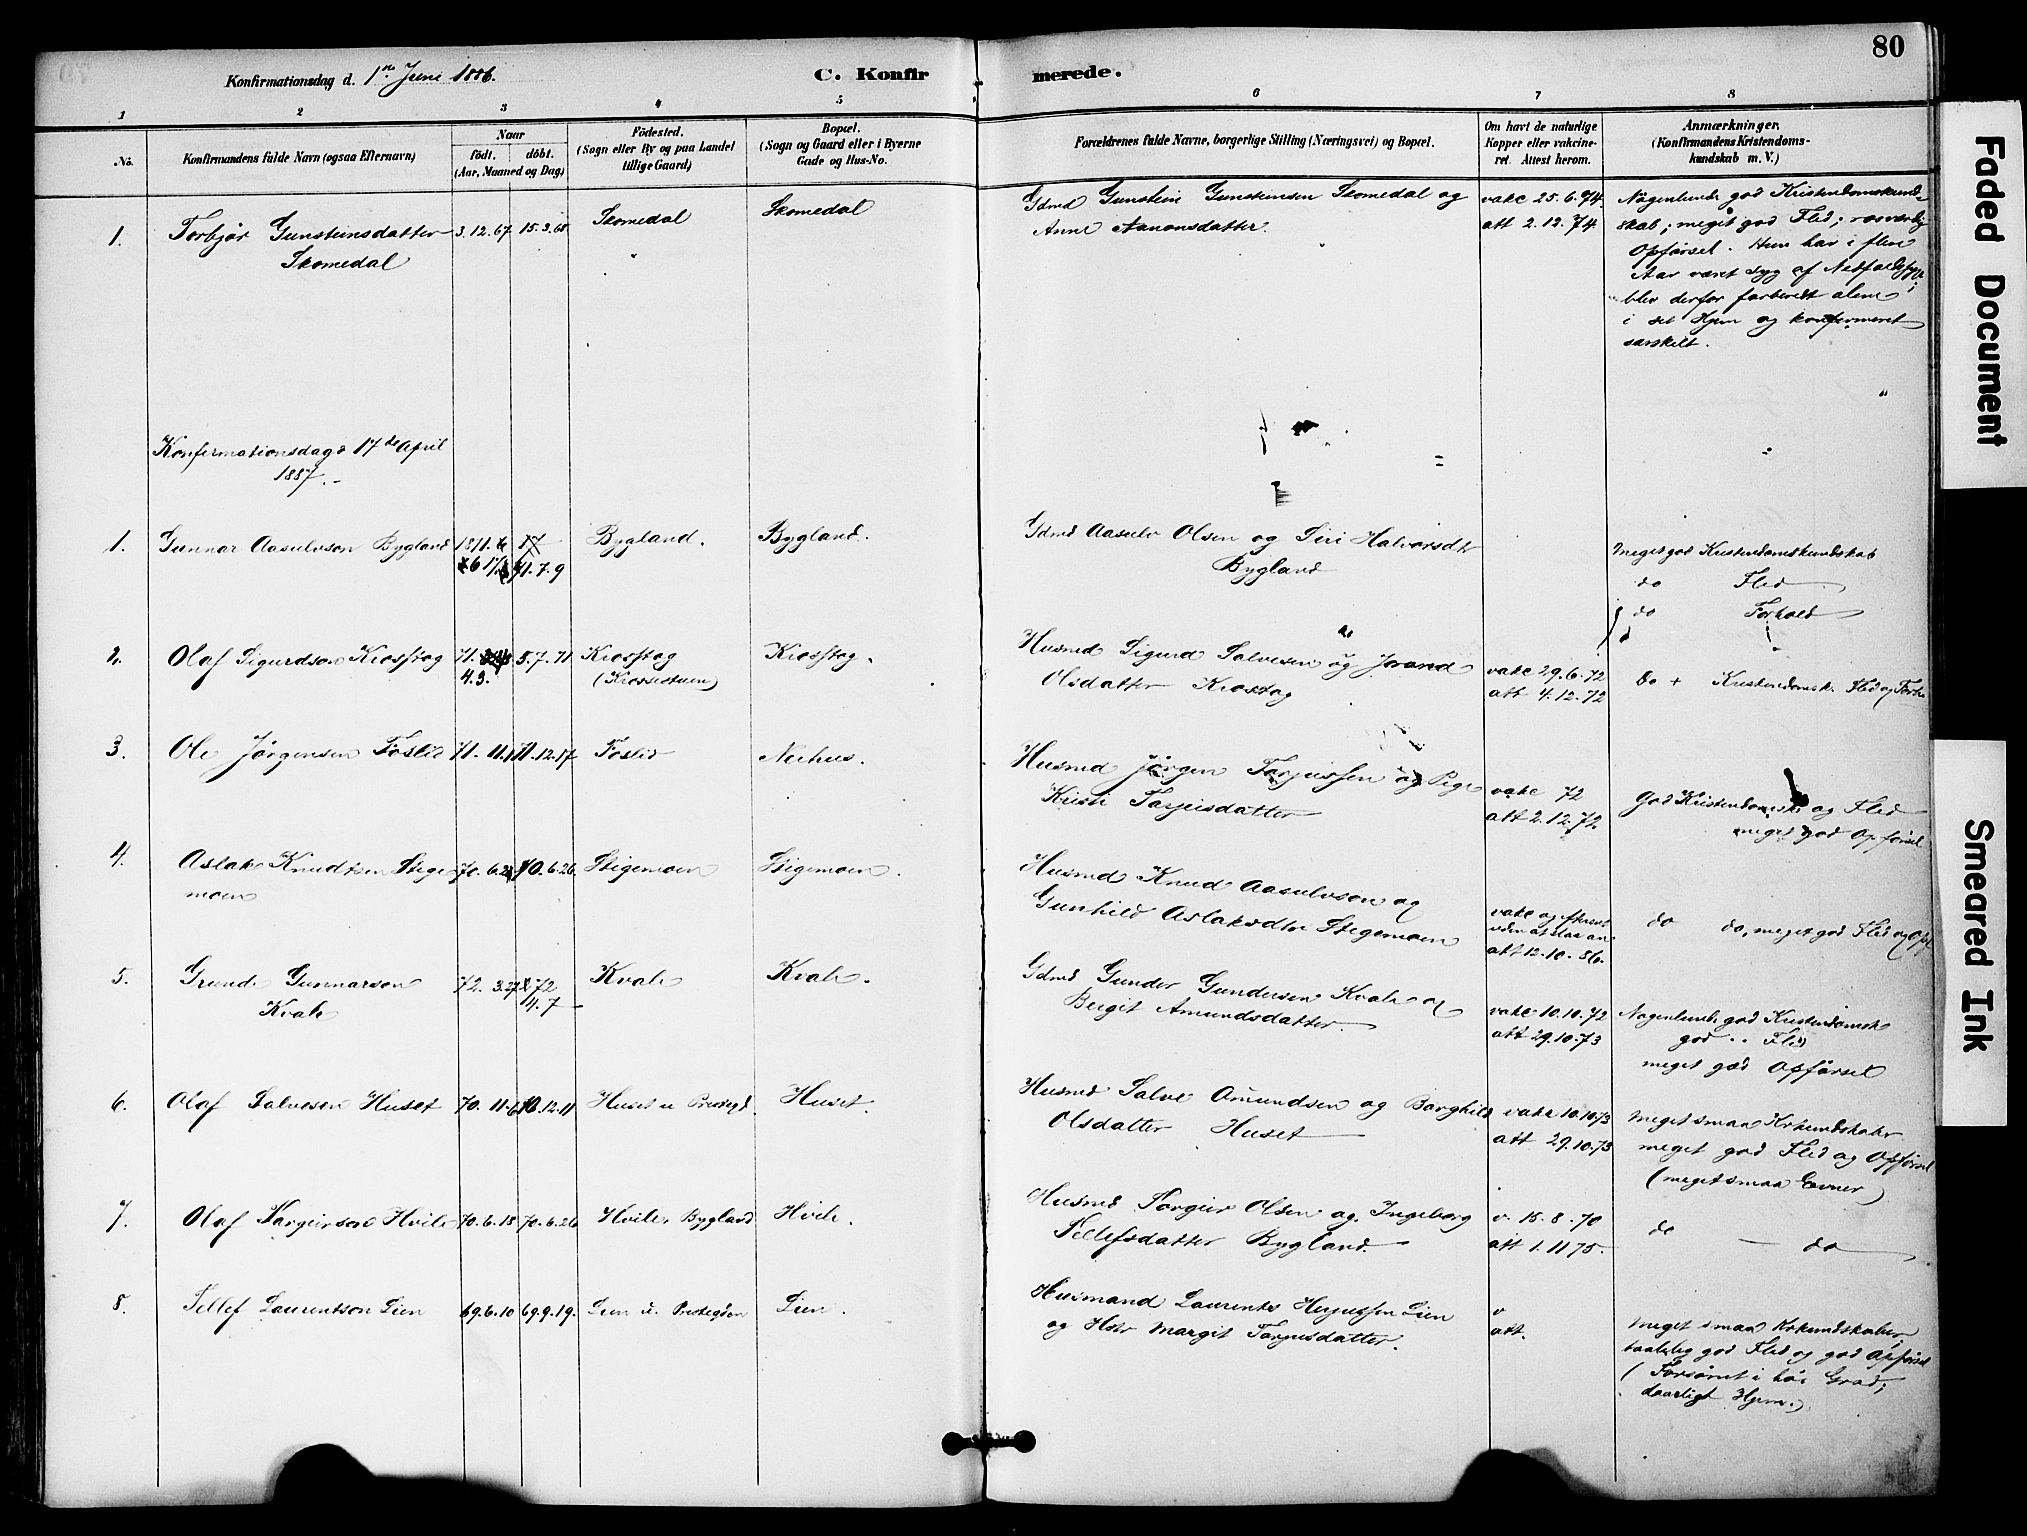 80
Konfirmationsdag d. 1ste Juni 1886.
C. Konfirmerede.
1 2 3 4 5 6 7 8
No.
Konfirmandens fulde Navn (ogsaa Efternavn)
Naar
født. døbt.
(Aar, Maaned og Dag)
Fødested.
(Sogn eller By og paa Landet
tillige Gaard)
Bopæl.
(Sogn og Gaard eller i Byerne
Gade og Hus-No.
Forældrenes fulde Navne, borgerlige Stilling (Næringsvei) og Bopæl.
Om havt de naturlige
Kopper eller vakcine-
ret. Attest herom.
Anmærkninger.
(Konfirmandens Kristendoms-
kundskab m. V.)
1. Torbjør Gunsteinsdatter 3.12.67 15.3.68 Skomedal Skomedal
Skomedal
Gdmd Gunstein Gunsteinsen Skomedal og
Anne Aanonsdatter.
vakc 25.6.74.
att 2.12.74.
Nogenlunde god Kristendomskund-
skab; meget god Flid; rosværdig
Opførsel. Hun har i flere
Aar været syg af Nedfaldssyge;
blev derfor forberedt alene
i sit Hjem og konfirmeret
særskilt.
Konfirmationsdag 17de April
1887.
1. Gunnar Aasulvson Bygland 1871. 71.7.9 Bygland. Bygland.
Gdmd Aasulv Olsen og Siri Halvorsdtr
Bygland
Meget god Kristendomskundskab
do Flid
do Forhold
2. Olaf Sigurdson Krosstog 71. 4.3. 5.7.71 Krosstog Krosstog.
(Krossestuen)
Husmd Sigurd Salvesen og Jorand
Olsdatter Krostog
vakc 29.6.72
att 4.12.72
do + Kristendomsk. Flid og Forh.
3. Ole Jørgensen Foslid 71.11. 71.12.17 Foslid Neihus.
Husmd Jørgen Tarjussen og Pige
Kristi Tarjusdatter
vakc 72
att 2.12.72
God Kristendomsk og Flid
meget god Opførsel
4. Aslak Knudtsen Stige 70.6. 70.6.26. Stigemoen Stigemoen.
moen
Husmd Knud Aasulvson og
Gunhild Aslaksdtr Stegemoen
vakc og
uden at slaa an
att 12.10.86.
do do, meget god Flid og Opf
5. Gunde Gunnarson 72.3. 72 4.7 Kvale Kvale.
Kvale
Gdmd Gunder Gundersen Kvale og
Bergit Amundsdatter.
vakc 10.10.72
att 29.10.73
Nogenlunde god Kristendomsk
god Flid
meget god Opførsel
6. Olaf Salvesen Huset 70.11. 70.12.11 Huset u Prestegd Huset.
Husmd Salve Amundsen og Borghild
Olsdatter Huset
vakc 10.10.73
att 29.10.73
Meget smaa Krkundskaber
meget god Flid og Opførsel
(meget smaa Evner)
7. Olaf Targeirson Hvile 70.6.13 70.6.26 Hvile, Bygland Hvile.
Husmd Torgeir Olsen og Ingeborg
Tellefsdatter Bygland.
v. 15.8.70
att 1.11 75.
do do
8. Tellef Laurentson Lien 69.6.10 69.9.19. Lien u. Prestegden Lien.
Husmand Laurents Lien
og Hstr Margit Tarjusdatter.
v
att.
Meget smaa Krkundskaber,
taalelig god Flid og god Opførsel
(Forsømt i høi Grad;
daarligt Hjem.)
Faded Document
Smeared Ink